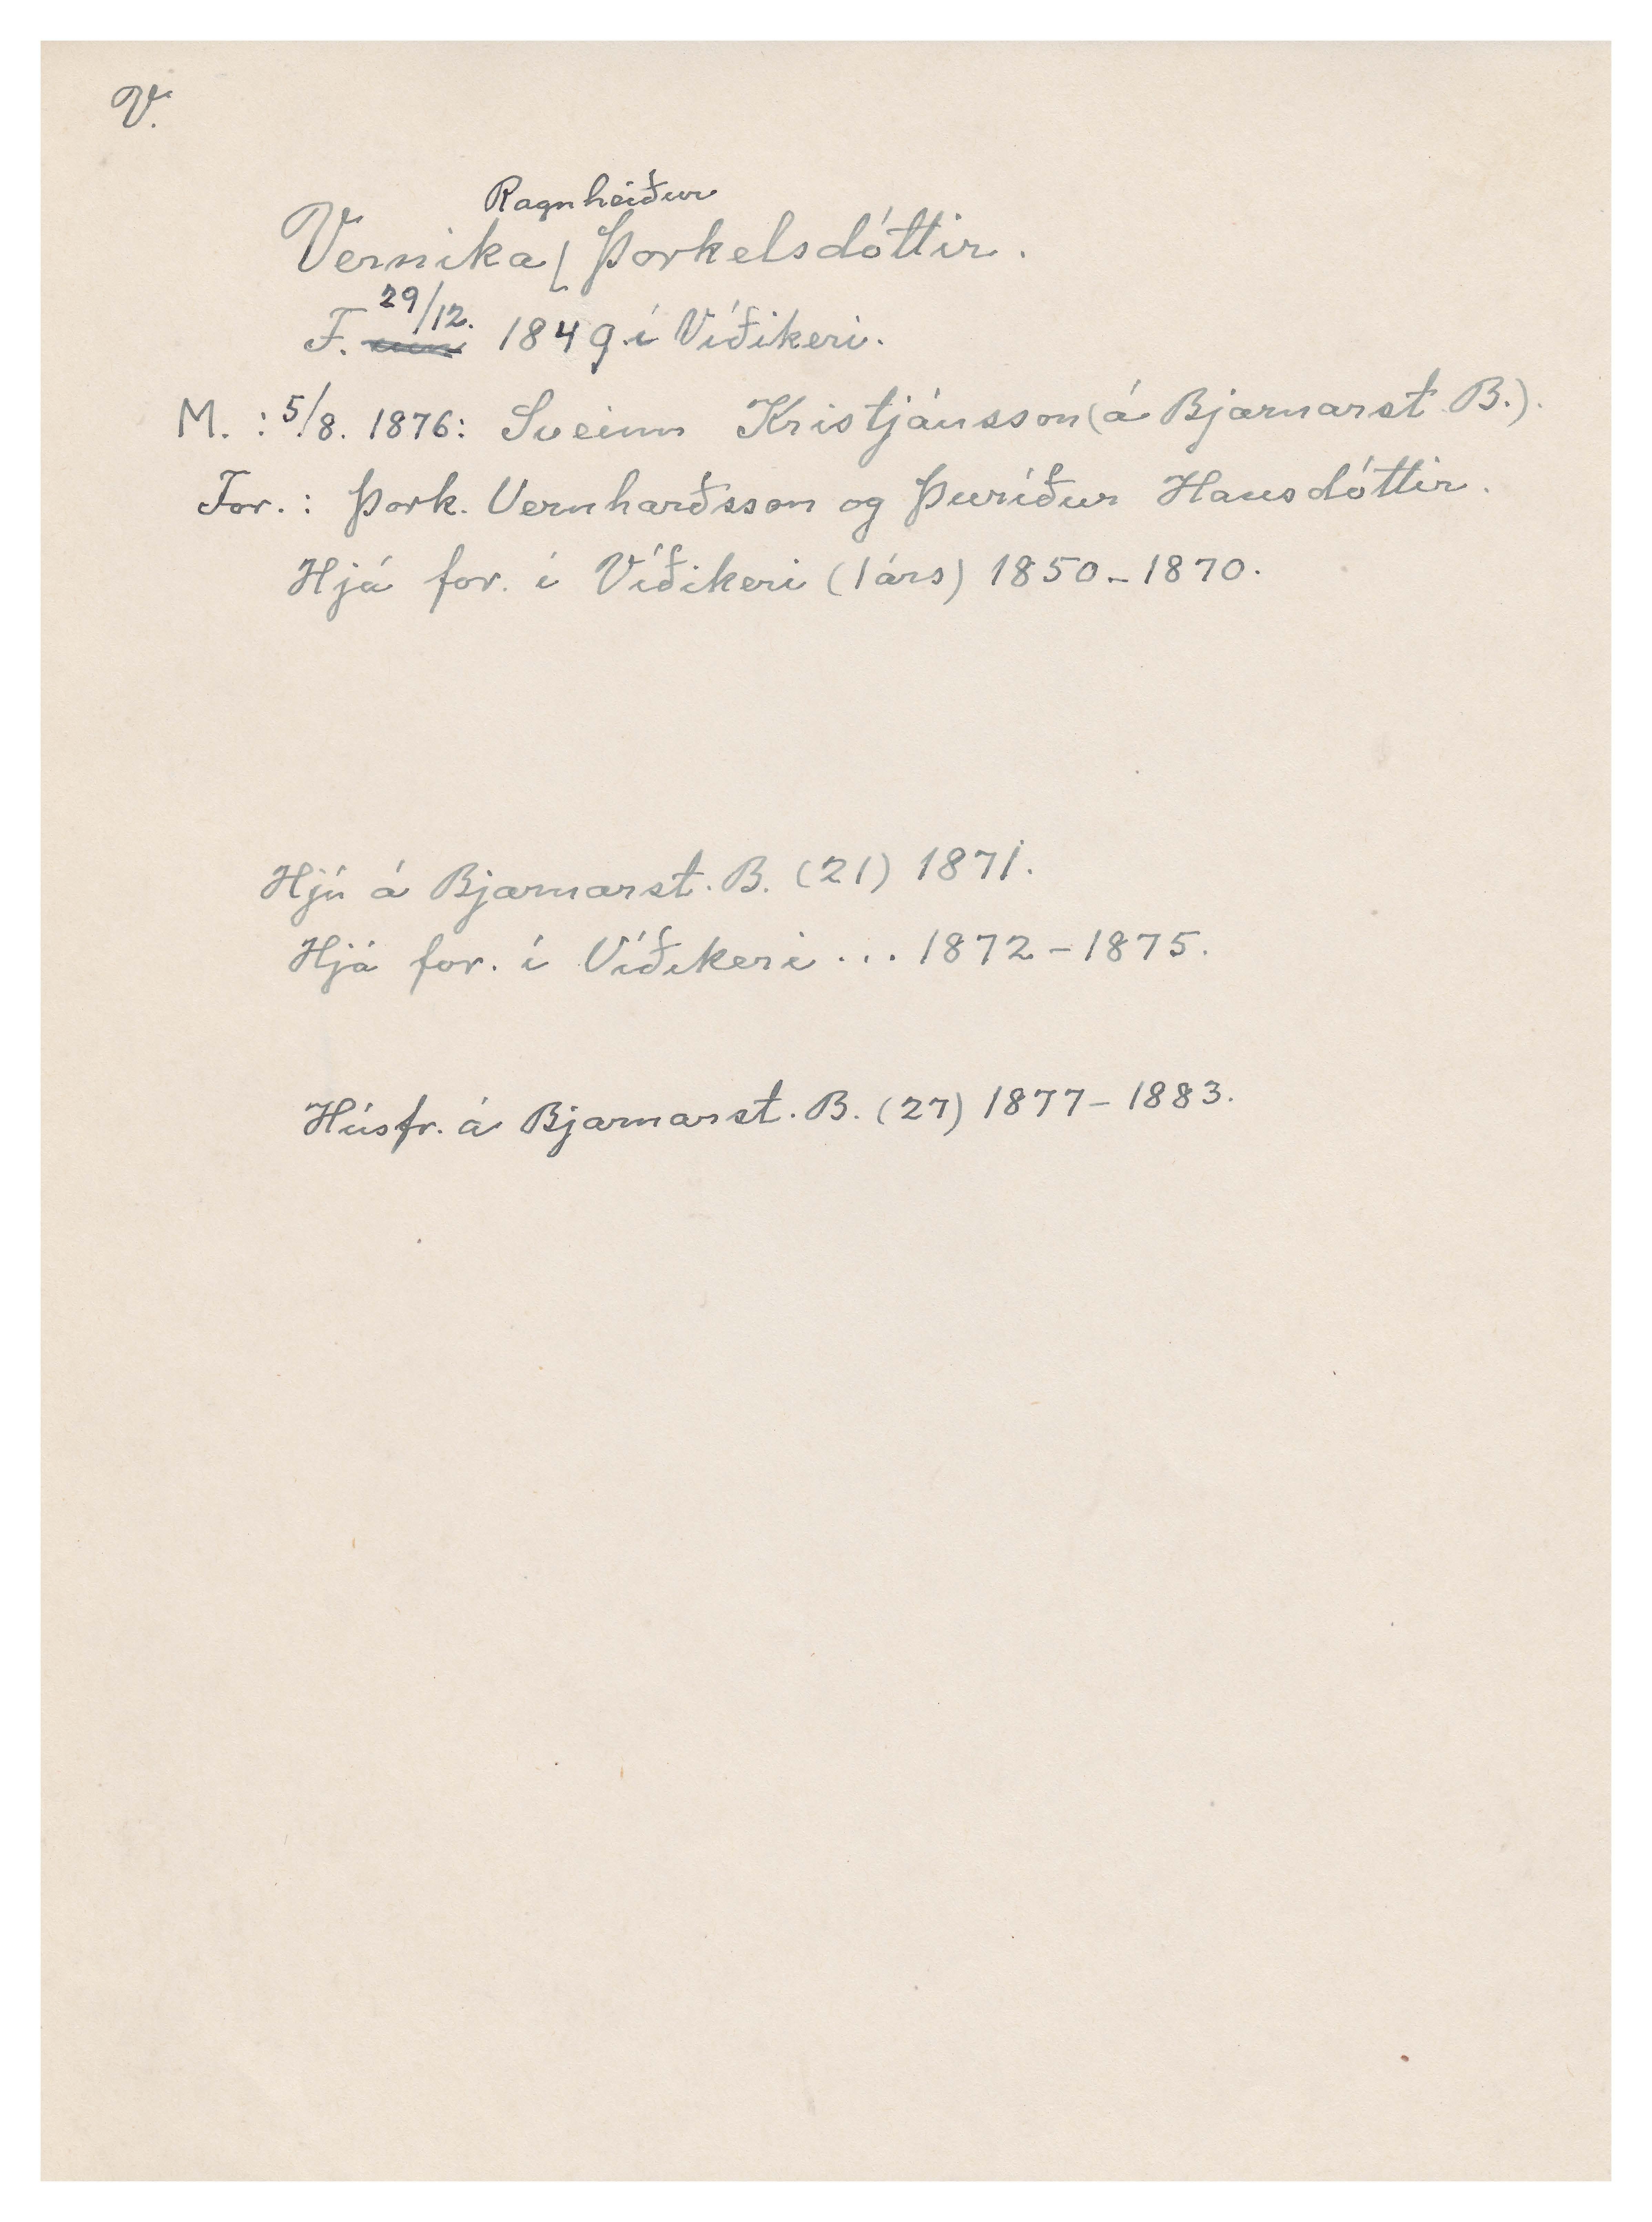 V.
Ragnheiður
Vernika Þorkelsdóttir.
29/12.
F. 1849 í Víðikeri.
M. : 5/8. 1876: Sveinn Kristjánsson (á Bjarnarst. B.).
For. : Þork. Vernharðsson og Þuríður Hansdóttir.
Hjá for. í Víðikeri (1 árs) 1850-1870.
Hjú á Bjarnarst. B. (21) 1871.
Hjá for. í Víðikeri ... 1872-1875.
Húsfr. á Bjarnarst. B. (27) 1877-1883.